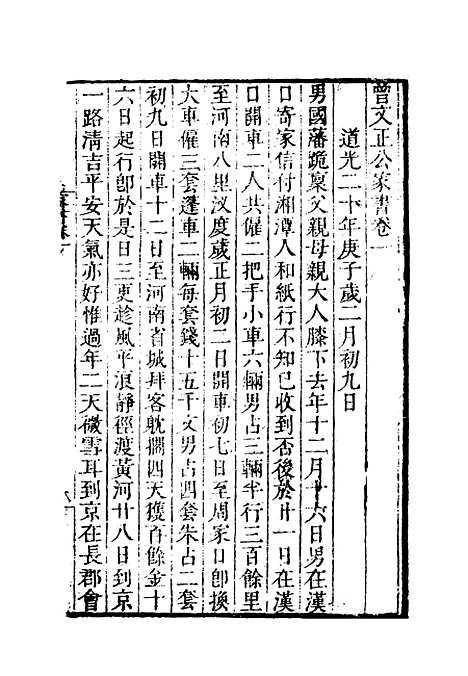 曾文正公家書卷一
道光二十年庚子歲二月初九日
男國藩跪稟父親母親大人膝下去年十二月十六日男在漢
口寄家信付湘潭人和紙行不知已收到否後於廿一日在漢
口開車二人共僱二把手小車六輛男占三輛半行三百餘里
至河南八里汊度歲正月初二日開車初七日至周家口即換
大車僱三套篷車二輛每套錢十五千文男占四套朱占二套
初九日開車十二日至河南省城拜客躭擱四天獲百餘金十
六日起行即於是日三更趁風平浪靜徑渡黃河廿八日到京
一路清吉平安天氣亦好惟過年二天微雪耳到京在長郡會